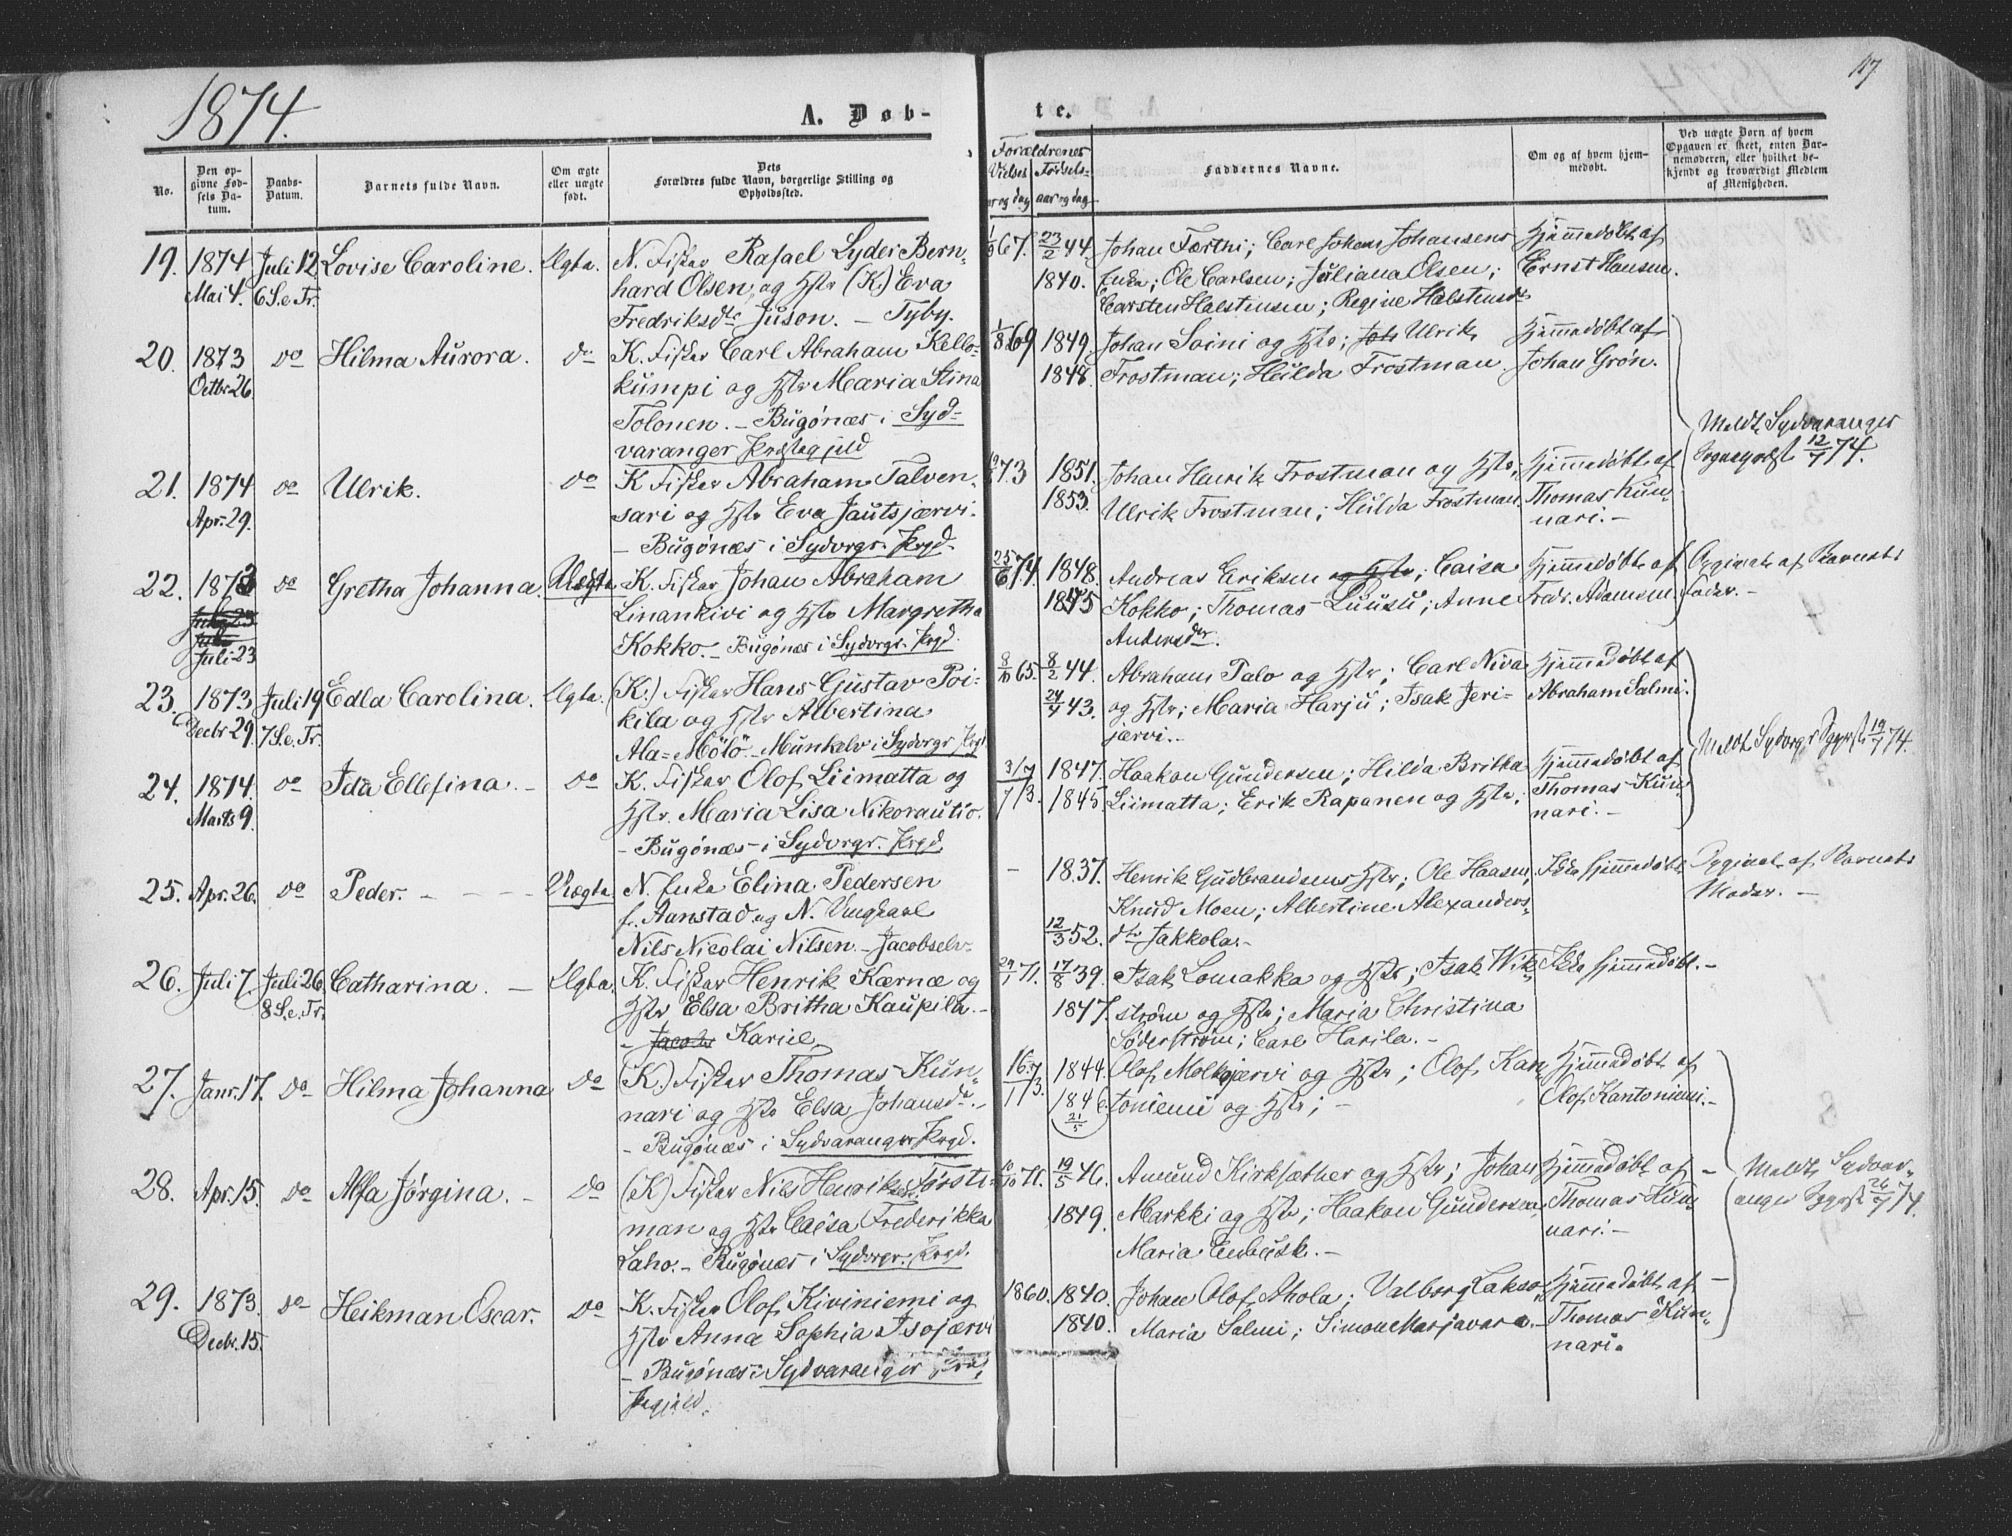 1874.
A. Døb-
te.
117
No.
Den op-
givne Fød-
sels Da-
tum.
Daabs-
Datum.
Barnets fulde Navn.
Om ægte
eller uægte
født.
Dets
Forældres fulde Navn, borgerlige Stilling og
Opholdssted.
Forældrenes
Vielses
Fødsels-
aar og dag
Faddernes Navne.
Om og af hvem hjem-
medøbt.
Ved uægte Børn af hvem
Opgaven er skeet, enten Bar-
nemoderen, eller hvilket be-
kjendt og troværdigt Medlem
af Menigheden.
19. 1874 Mai 4. Juli 12 6 S. e. Tr. Lovise Caroline. Ægte.
N. Fisker Rafael Lyder Bern-
hard Olsen og Hstr (K.) Eva
Fredriksdtr Juson. - Tyby.
1/9 67. 23/2 44.
1840.
Johan Færthi; Carl Johan Johansens
Enke; Ole Carlsen; Juliana Olsen;
Carsten Halstensen; Regine Halstensdtr
Hjemmedøbt af
Ernst Hansen.
20. 1873 Octbr 26 do Hilma Aurora. do
K. Fisker Carl Abraham Kello-
kumpi og Hstr Maria Stina
Tolonen. - Bugønæs i Syd-
varanger Præstegjeld
1/8 69 1849.
1848.
Johan Soini og Hstr; Joh Ulrik
Frostman; Hulda Frostman.
Hjemmedøbt af
Johan Grøn.
Meldt Sydvaranger
Sognepræst 12/7 74.
21. 1874 Apr. 29. do Ulrik. do
K Fisker Abraham Talven-
sari og Hstr Eva Jautsjærvi.
- Bugønæs i Sydvrgr. Prgd.
73 1851.
1853.
Johan Henrik Frostman og Hstr,
Ulrik Frostman; Hulda Frostman.
Hjemmedøbt af
Thomas Kun-
nari. -
22. 1873 Juli 23 do Gretha Johanna. Uægte
K. Fisker Johan Abraham
Linankivi og Hstr Margretha
Kokko. - Bugønæs i Sydvrgr. Prgd.
25/6 74. 1848.
1845
Andreas Eriksen og Hstr; Caisa
Kokko; Thomas Luusu; Anne
Andersdtr.
Hjemmedøbt af
Fredr. Adamsen.
Opgivet af Barnets
Fader. -
23. 1873 Decbr 29. Juli 19 7 S. e. Tr. Edla Carolina. Ægte.
(K.) Fisker Hans Gustav Poi-
kila og Hstr Albertina
Ala-Mölö - Munkelv i Sydvrgr Prgd
8/10 65. 8/2 44.
24/7 43.
Abraham Palo og Hstr; Carl Niva
og Hstr; Maria Harju; Isak Jeri-
jærvi. -
Hjemmedøbt af
Abraham Salmi.
Meldt Sydvrgr Sgprst 19/7 74.
24. 1874. Marts 9. do Ida Ellefina. - do
K. Fisker Olof Liimatta og
Hstr. Maria Lisa Nikorautio.
- Bugønæs - i Sydvrgr. Prgd.
3/7 73. 1847.
1845.
Haakon Gundersen; Hilda Britha
Liimatta; Erik Rapanen og Hstr;
Hjemmedøbt af
Thomas Kun-
nari. -
25. Apr. 26. do Peder. - Uægte
N. Enke Elina Pedersen
f. Aanstad og N. Ungkarl
Nils Nicolai Nilsen. - Jacobselv
- 1837.
12/3 52.
Henrik Gudbrandsens Hstr; Ole Haasen,
Knud Moen; Albertine Alexanders-
dtr Jakkola. -
Ikke hjemmedøbt.
Opgivet af Barnets
Moder. -
26. Juli 7. Juli 26. 8 S. e. Tr. Catharina. - Ægte.
K. Fisker Henrik Kærnæ og
Hstr Elsa Britha Kaupila. -
- Jacobs Kariel,
71. 17/8 39.
1847.
Isak Lomakka og Hstr; Isak Wik-
strøm og Hstr; Maria Christina
Söderstrøm; Carl Harila. -
Ikke hjemmedøbt. -
27. Janr. 17. do Hilma Johanna do
(K.) Fisker Thomas Kun-
nari og Hstr Elsa Johansdtr. -
- Bugønæs i Sydvaranger Prgd.
16/7 73. 1844.
1846. 21/5
Olof Molkojærvi og Hstr; Olof Kan-
toniemi og Hstr; -
Hjemmedøbt af
Olof Kantoniemi. -
28. Apr. 15. do Alfa Jørgina. - do
(K) Fisker Nils Henrik Forsti-
man og Hstr Caisa Frederikka
Laho. - Bugønæs i Sydvrgr. Prgd.
10/10 71. 19/5 46.
1849.
Amund Kirksæther og Hstr; Johan
Markki og Hstr; Haakon Gundersen,
Maria Enbusk. -
Hjemmedøbt af
Thomas Kun-
nari. -
Meldt Sydvar-
anger Sgprst 26/7 74.
29. 1873. Decbr. 15. do Heikman Oscar. do
K. Fisker Olof Kiviniemi og
Hstr Anna Sophia Isojærvi
- Bugønæs i Sydvaranger
Prgjeld.
1860. 1840.
1840.
Johan Olof Ahola; Valborg Lakso
Maria Salmi; Simon Marjavara. -
Hjemmedøbt af
Thomas Kun-
nari.